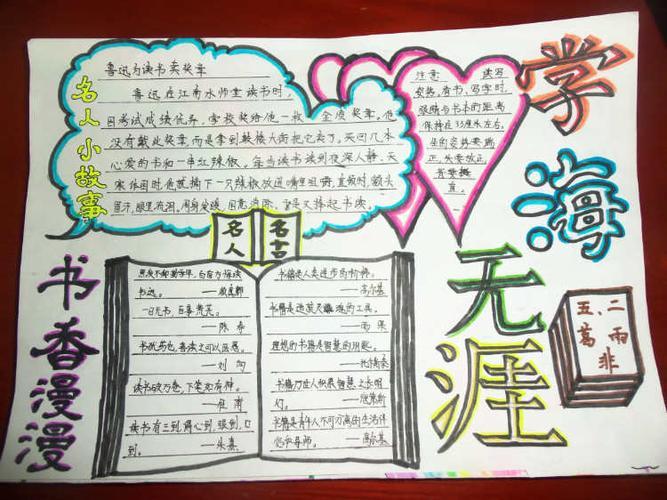 学海无涯
名人小故事
鲁迅为读书卖奖章
鲁迅在江南水师堂读书时，
因考试成绩优异，学校奖给他一枚金质奖章。他
没有戴此奖章，而是拿到鼓楼大街把它卖了，买回几本
心爱的书和一串红辣椒。每当读书读到夜深人静、天
寒体困时，他就摘下一只辣椒放进嘴里咀嚼，直嚼时，额头
冒汗，眼里流泪，周身发暖，困意消除，
于是又捧起书读。
注意 读写
姿势，看书、写字时，
眼睛与书本的距离
保持在33厘米左右，
坐的姿势要端
正，头要放正，
背要挺
直。
名人 名言
黑发不知勤学早，白首方悔读
书迟。
—颜真卿
一日无书，百事荒芜。
—陈寿
书犹药也，善读之可以医愚。
—刘向
读书破万卷，下笔如有神。
—杜甫
读书有三到，谓心到，眼到，口
到。
—朱熹
书籍是人类进步的阶梯。
—高尔基
书籍是造就灵魂的工具。
—雨果
理想的书籍是智慧的钥匙。
—托尔斯泰
灯。
书籍是青年人不可分离的生活伴
侣和导师。
—高尔基
书香漫漫
五、二
葛雨非